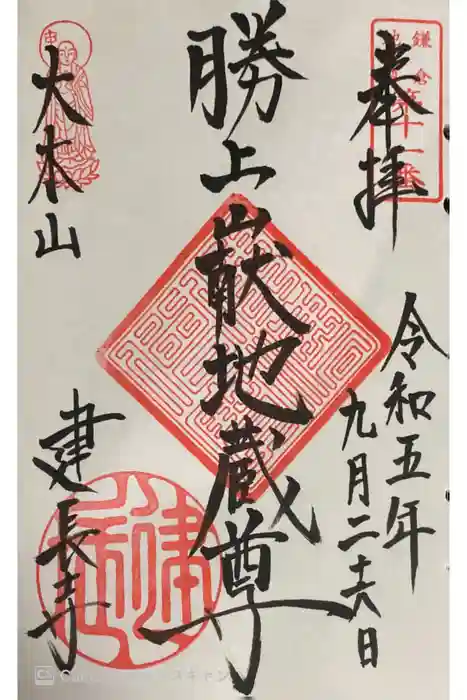 奉拝
鎌倉
十一番
令和五年
九月二十六日
勝上巚地蔵尊
大本山
建長寺